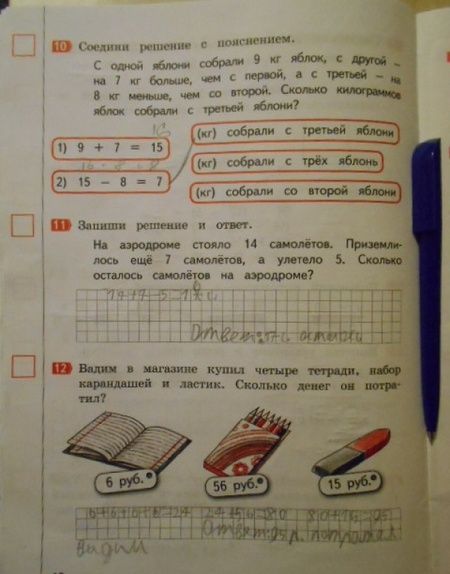 10 Соедини решение с пояснением.
С одной яблони собрали 9 кг яблок, с другой –
на 7 кг больше, чем с первой, а с третьей – на
8 кг меньше, чем со второй. Сколько килограммов
яблок собрали с третьей яблони?
16
1) 9 + 7 = 15
(кг) собрали с третьей яблони
16 - 8 = 8
(кг) собрали с трёх яблонь
2) 15 – 8 = 7
(кг) собрали со второй яблони
11 Запиши решение и ответ.
На аэродроме стояло 14 самолётов. Приземли-
лось ещё 7 самолётов, а улетело 5. Сколько
осталось самолётов на аэродроме?
14+7-5=
Ответ:
12 Вадим в магазине купил четыре тетради, набор
карандашей и ластик. Сколько денег он потра-
тил?
6 руб.
56 руб.
15 руб.
6+6+6+6=24
Ответ: потратил
Вадим